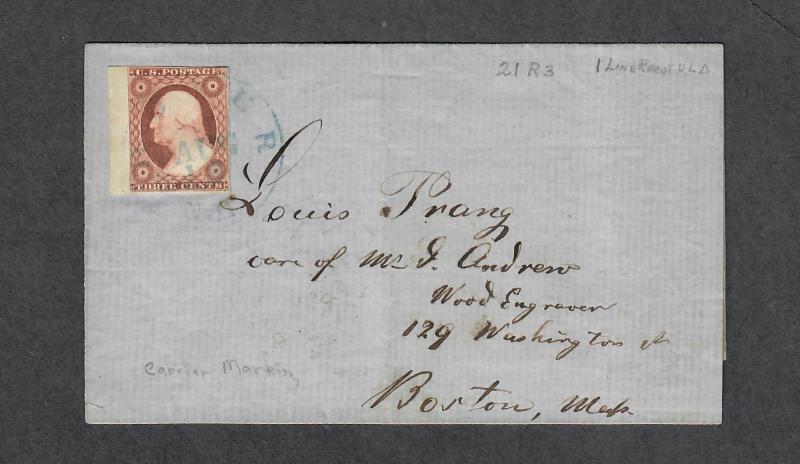 21R3
1 LINE RECUT ULΔ
U.S. POSTAGE
THREE CENTS
Louis Prang
care of Mr J. Andrew
Wood Engraver
129 Washington st
Boston, Mass
Carrier Marking